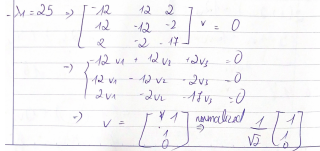 - λ1 = 25 => [ -12 12 2 ; 12 -12 -2 ; 2 -2 -17 ] v = 0
-) { -12 v1 + 12 v2 + 2v3 = 0
12 v1 - 12 v2 - 2v3 = 0
2v1 - 2v2 - 17v3 = 0
-) v = [ 1 ; 1 ; 0 ] normalized => 1/√2 [ 1 ; 1 ; 0 ]